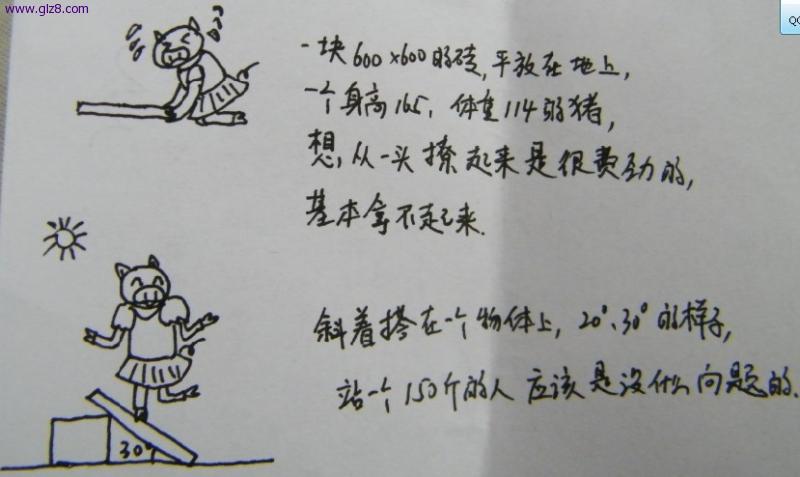 www.glz8.com
QQ
一块600×600的砖,平放在地上,
一个身高165,体重114的猪,
想,从一头撩起来是很费劲的,
基本拿不起来.
斜着搭在一个物体上,20°、30°的样子,
站一个150斤的人应该是没什么问题的.
30°